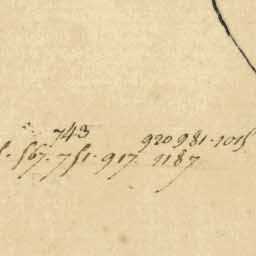 743 920 981·1015
567·751·917 1187